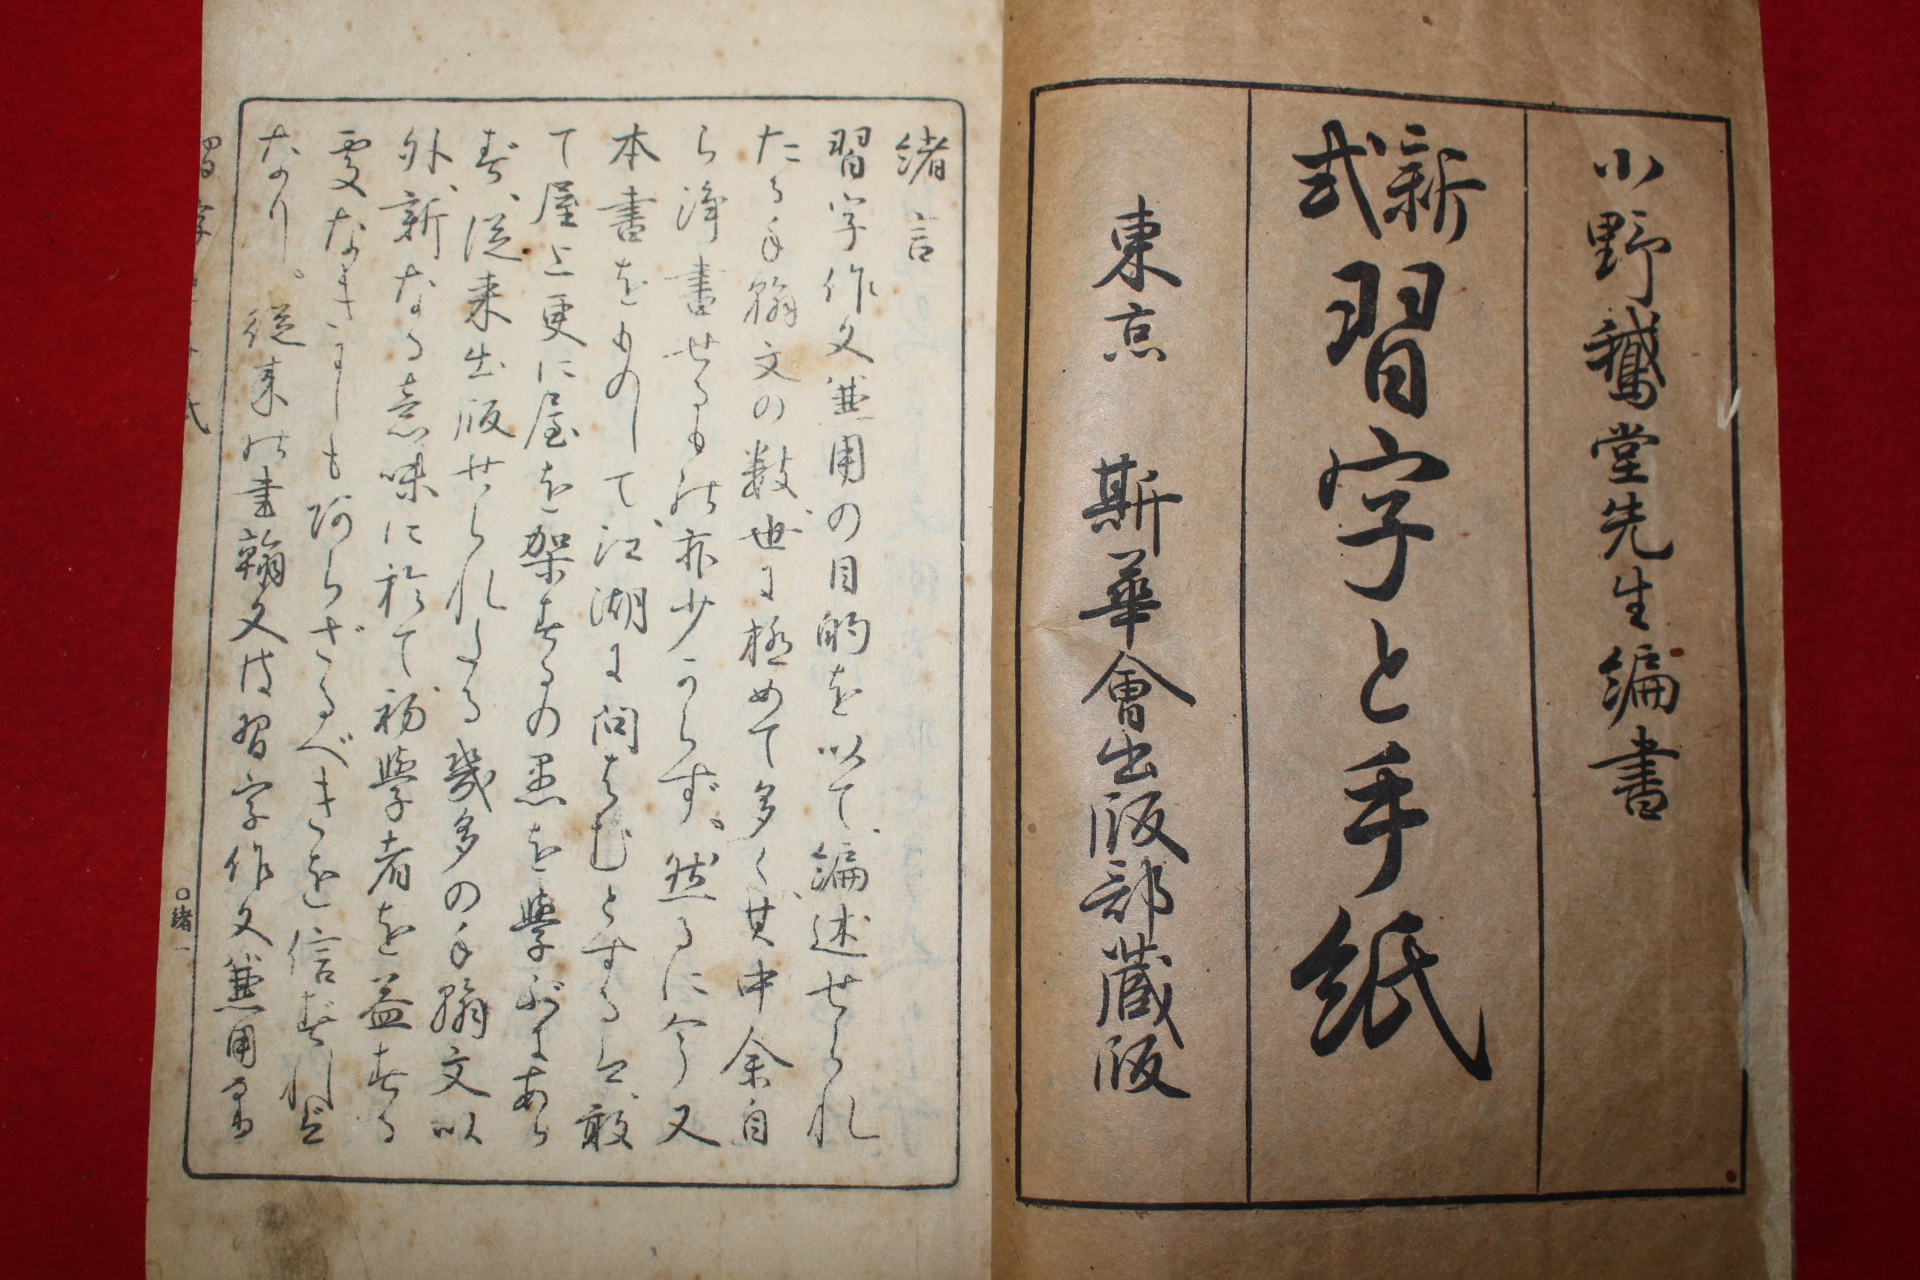 小野鵞堂先生編書
新式習字と手紙
東京 斯華會出版部藏版
緒言
習字作文兼用の目的を以て、編述せられ
たる手翰文の数、世に極めて多く、其中余自
ら浄書せるもの亦少からず。然るに今又
本書をものして、江湖に問はむとするは、敢
て屋上更に屋を架するの愚を學ぶにあら
ず、従来出版せられたる幾多の手翰文以
外、新なる意味に於て、初學者を益する
處なきにしもあらざるべきを信ずれば
なり。従来の書翰文は習字作文兼用
習字
紙
○緒一